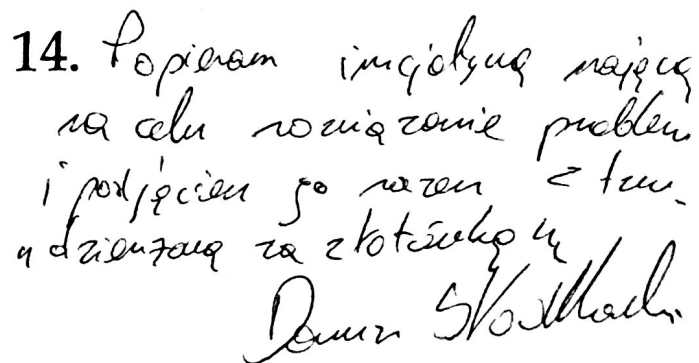 14. Popieram inicjatywę mającą
na celu rozwiązanie problem
i podjęciem go razem z tzw.
"dzierżawą za złotówkę"